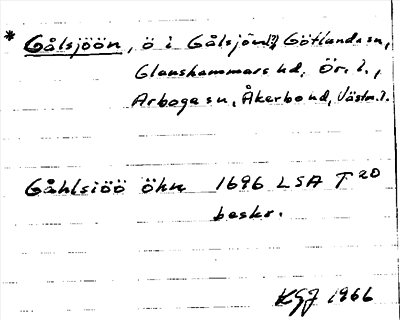 * Gålsjöön, ö i Gålsjön, Götlunda sn,
Glanshammars hd, Ör. l.,
Arboga sn, Åkerbo hd, Västm. l.
Gåhlsiöö öhn 1696 LSA T 20
beskr.
KGJ 1966